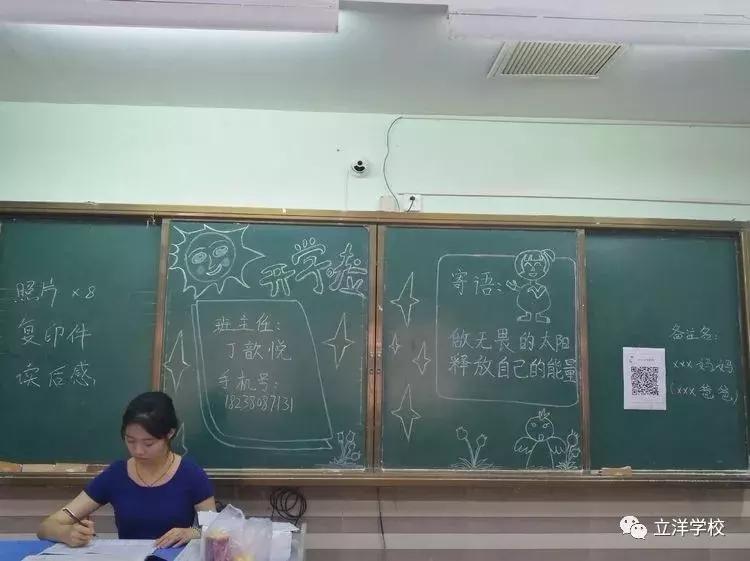 照片 ×8
复印件
读后感
开学啦
班主任:
丁歆悦
手机号:
18238087131
寄语:
做无畏的太阳
释放自己的能量
备注名:
xxx妈妈
(xxx爸爸)
立洋学校